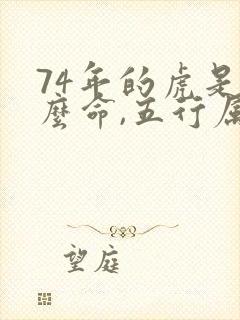 74年的虎是
麼命,五行属
望庭